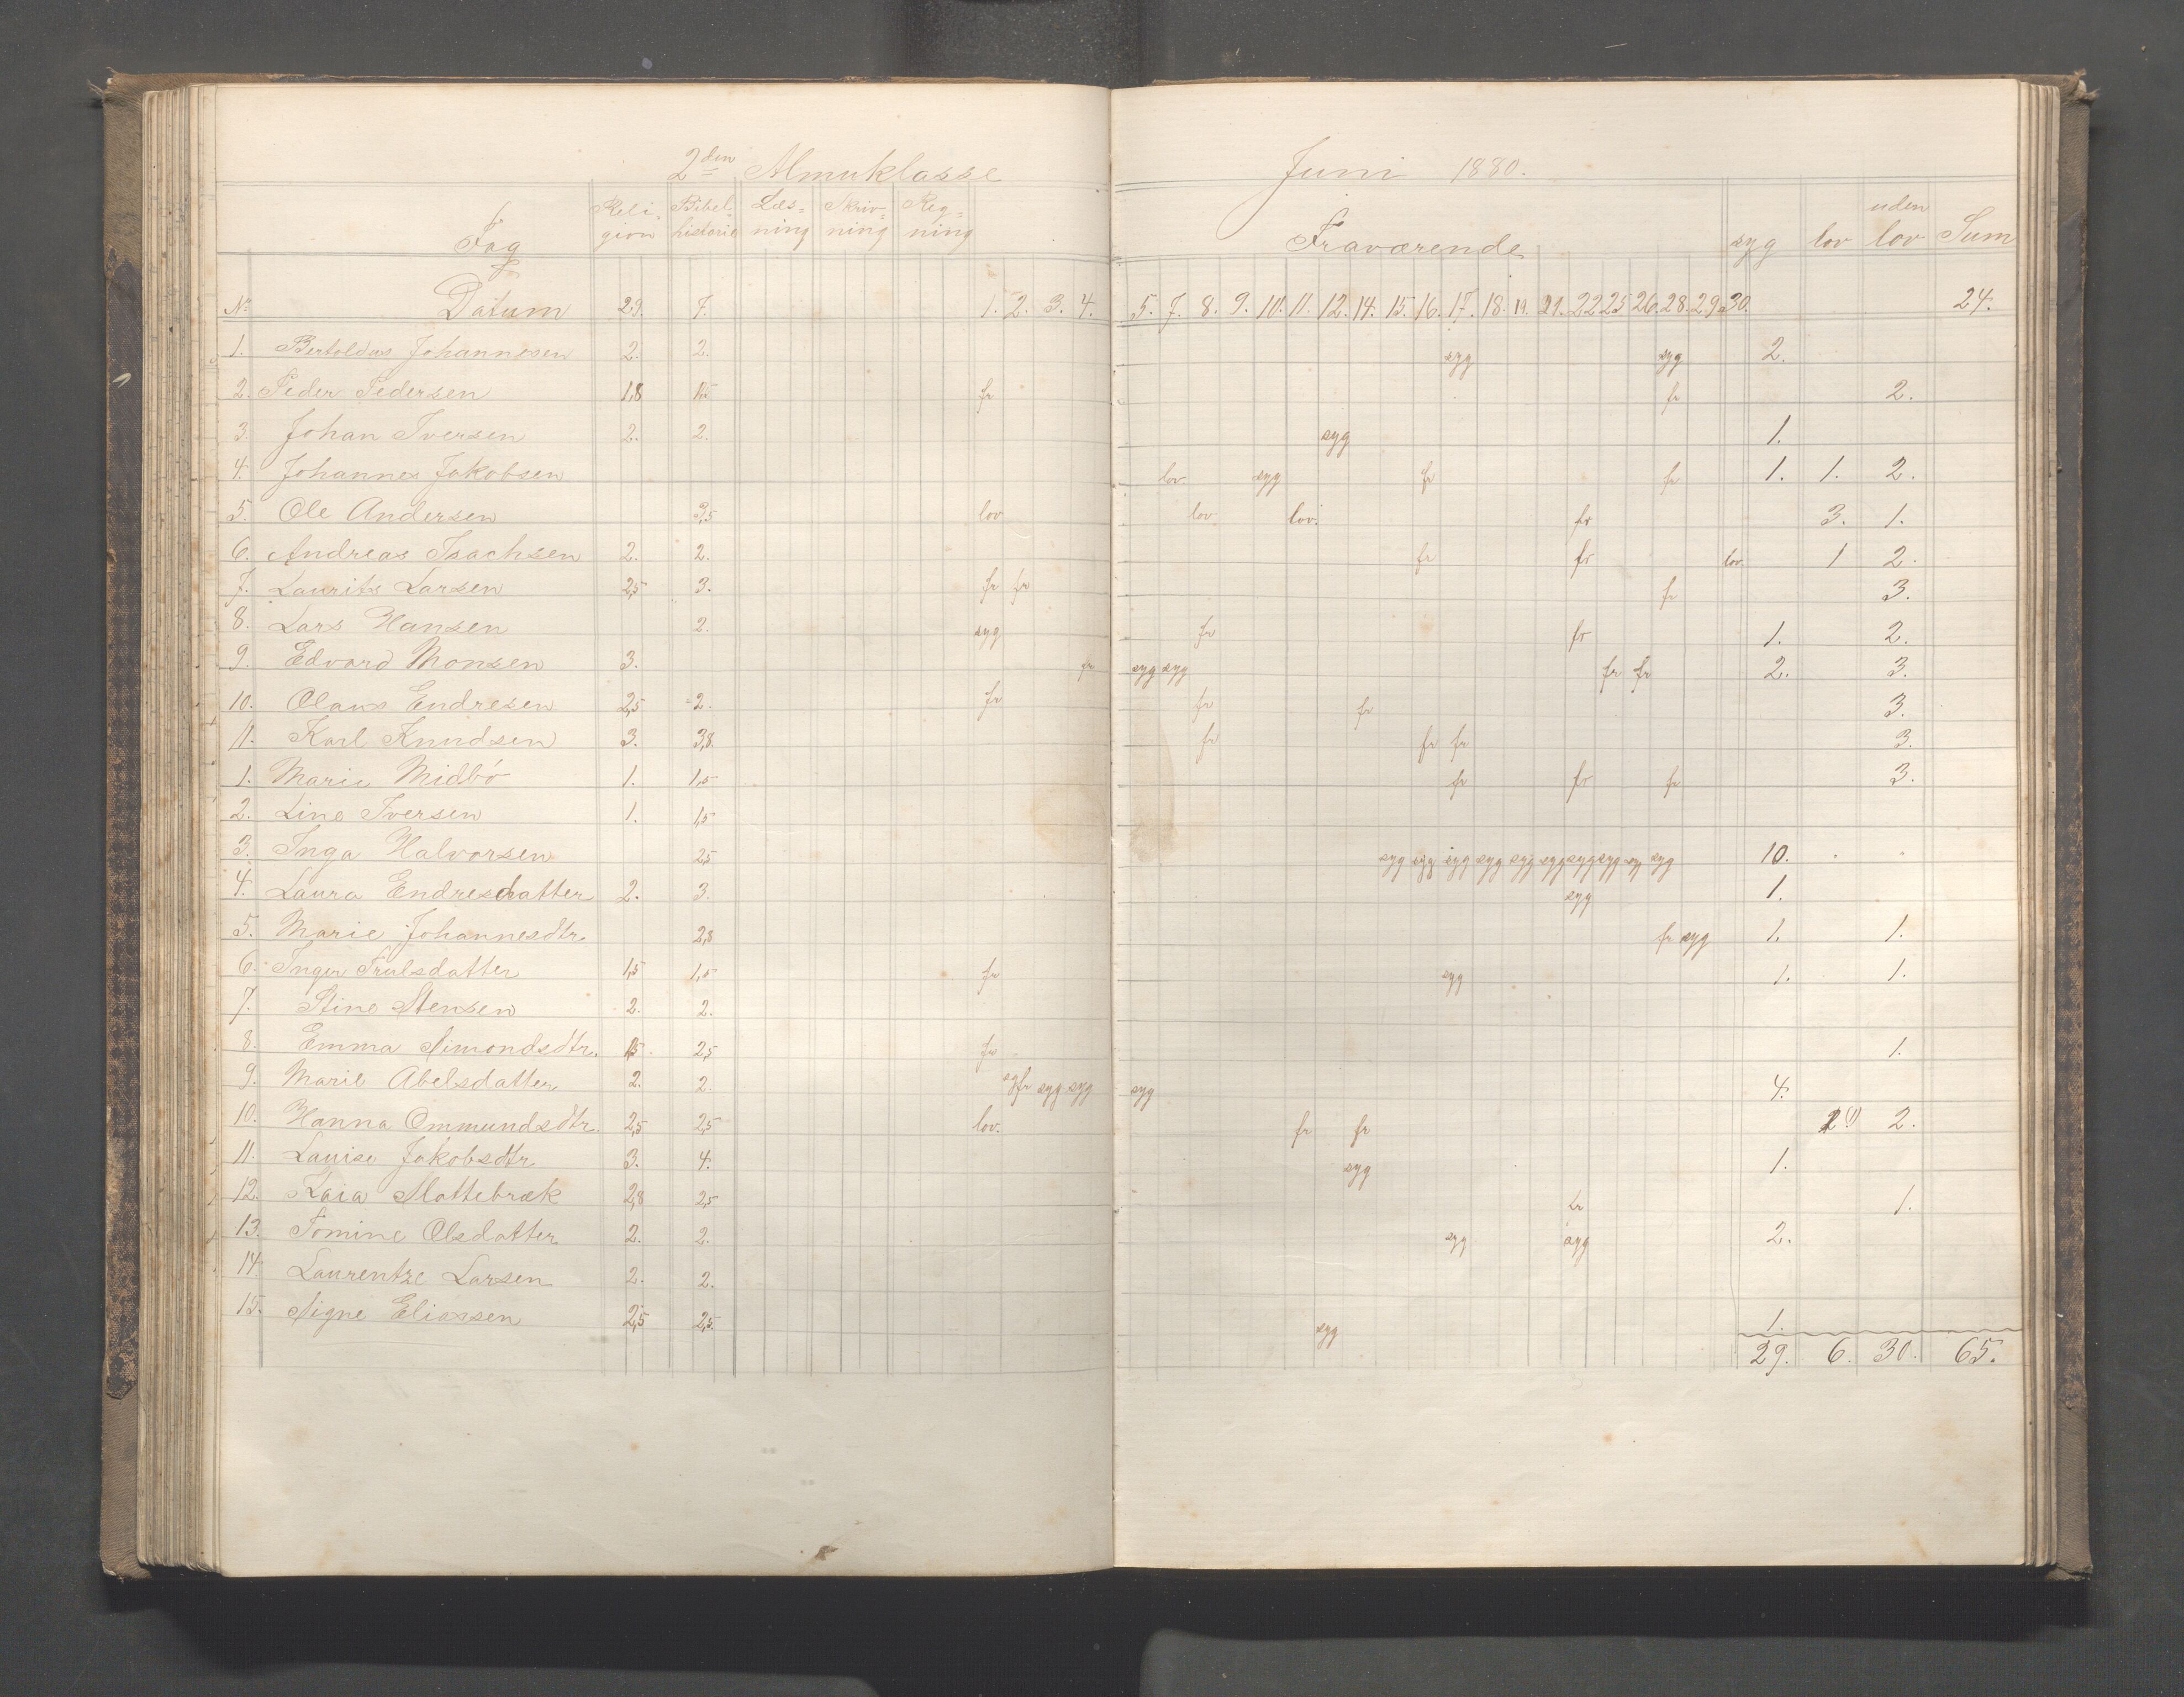 2den Almuklasse Juni 1880.
Fag Religion Bibelhistorie Læsning Skrivning Regning Fraværende syg lov uden lov Sum
No Datum 29. 7. 1. 2. 3. 4. 5. 7. 8. 9. 10. 11. 12. 14. 15. 16. 17. 18. 19. 21. 22 25 26. 28. 29. 30. 24.
1. Bertoldus Johannesen 2. 2. syg syg 2.
2. Peder Pedersen 1,8 1,5 fr fr 2.
3. Johan Iversen 2. 2. syg 1.
4. Johannes Jakobsen lov syg fr fr 1. 1. 2.
5. Ole Andersen 3,5 lov lov lov. fr 3. 1.
6. Andreas Isachsen 2. 2. fr fr lov. 1 2.
7. Laurits Larsen 2,5 3. fr fr fr 3.
8. Lars Hansen 2. syg fr fr 1. 2.
9. Edvard Monsen 3. fr syg syg fr fr 2. 3.
10. Olaus Endresen 2,5 2. fr fr fr 3.
11. Karl Knudsen 3. 3,8. fr fr fr 3.
1. Marie Midbö 1. 1,5 fr fr fr 3.
2. Line Iversen 1. 1,5
3. Inga Halvorsen 2,5 syg syg syg syg syg syg syg syg sy syg 10.
4. Laura Endresdatter 2. 3. syg 1.
5. Marie Johannesdtr. 2,8 fr syg 1. 1.
6. Inger Trulsdatter 1,5 1,5 fr syg 1. 1.
7. Stine Stensen 2. 2.
8. Emma Simondsdtr. 1,5 2,5 fr 1.
9. Marie Abelsdatter 2. 2. syg syg syg 4.
10. Hanna Ommundsdtr. 2,5 2,5 lov. fr fr 2.
11. Lauise Jakobsdtr 3. 4. syg 1.
12. Kaia Slottebræk 2,8 2,5 fr 1.
13. Tomine Olsdatter 2. 2. syg syg 2.
14 Laurentze Larsen 2. 2.
15. Signe Eliassen 2,5 2,5. syg 1.
29. 6. 30. 65.